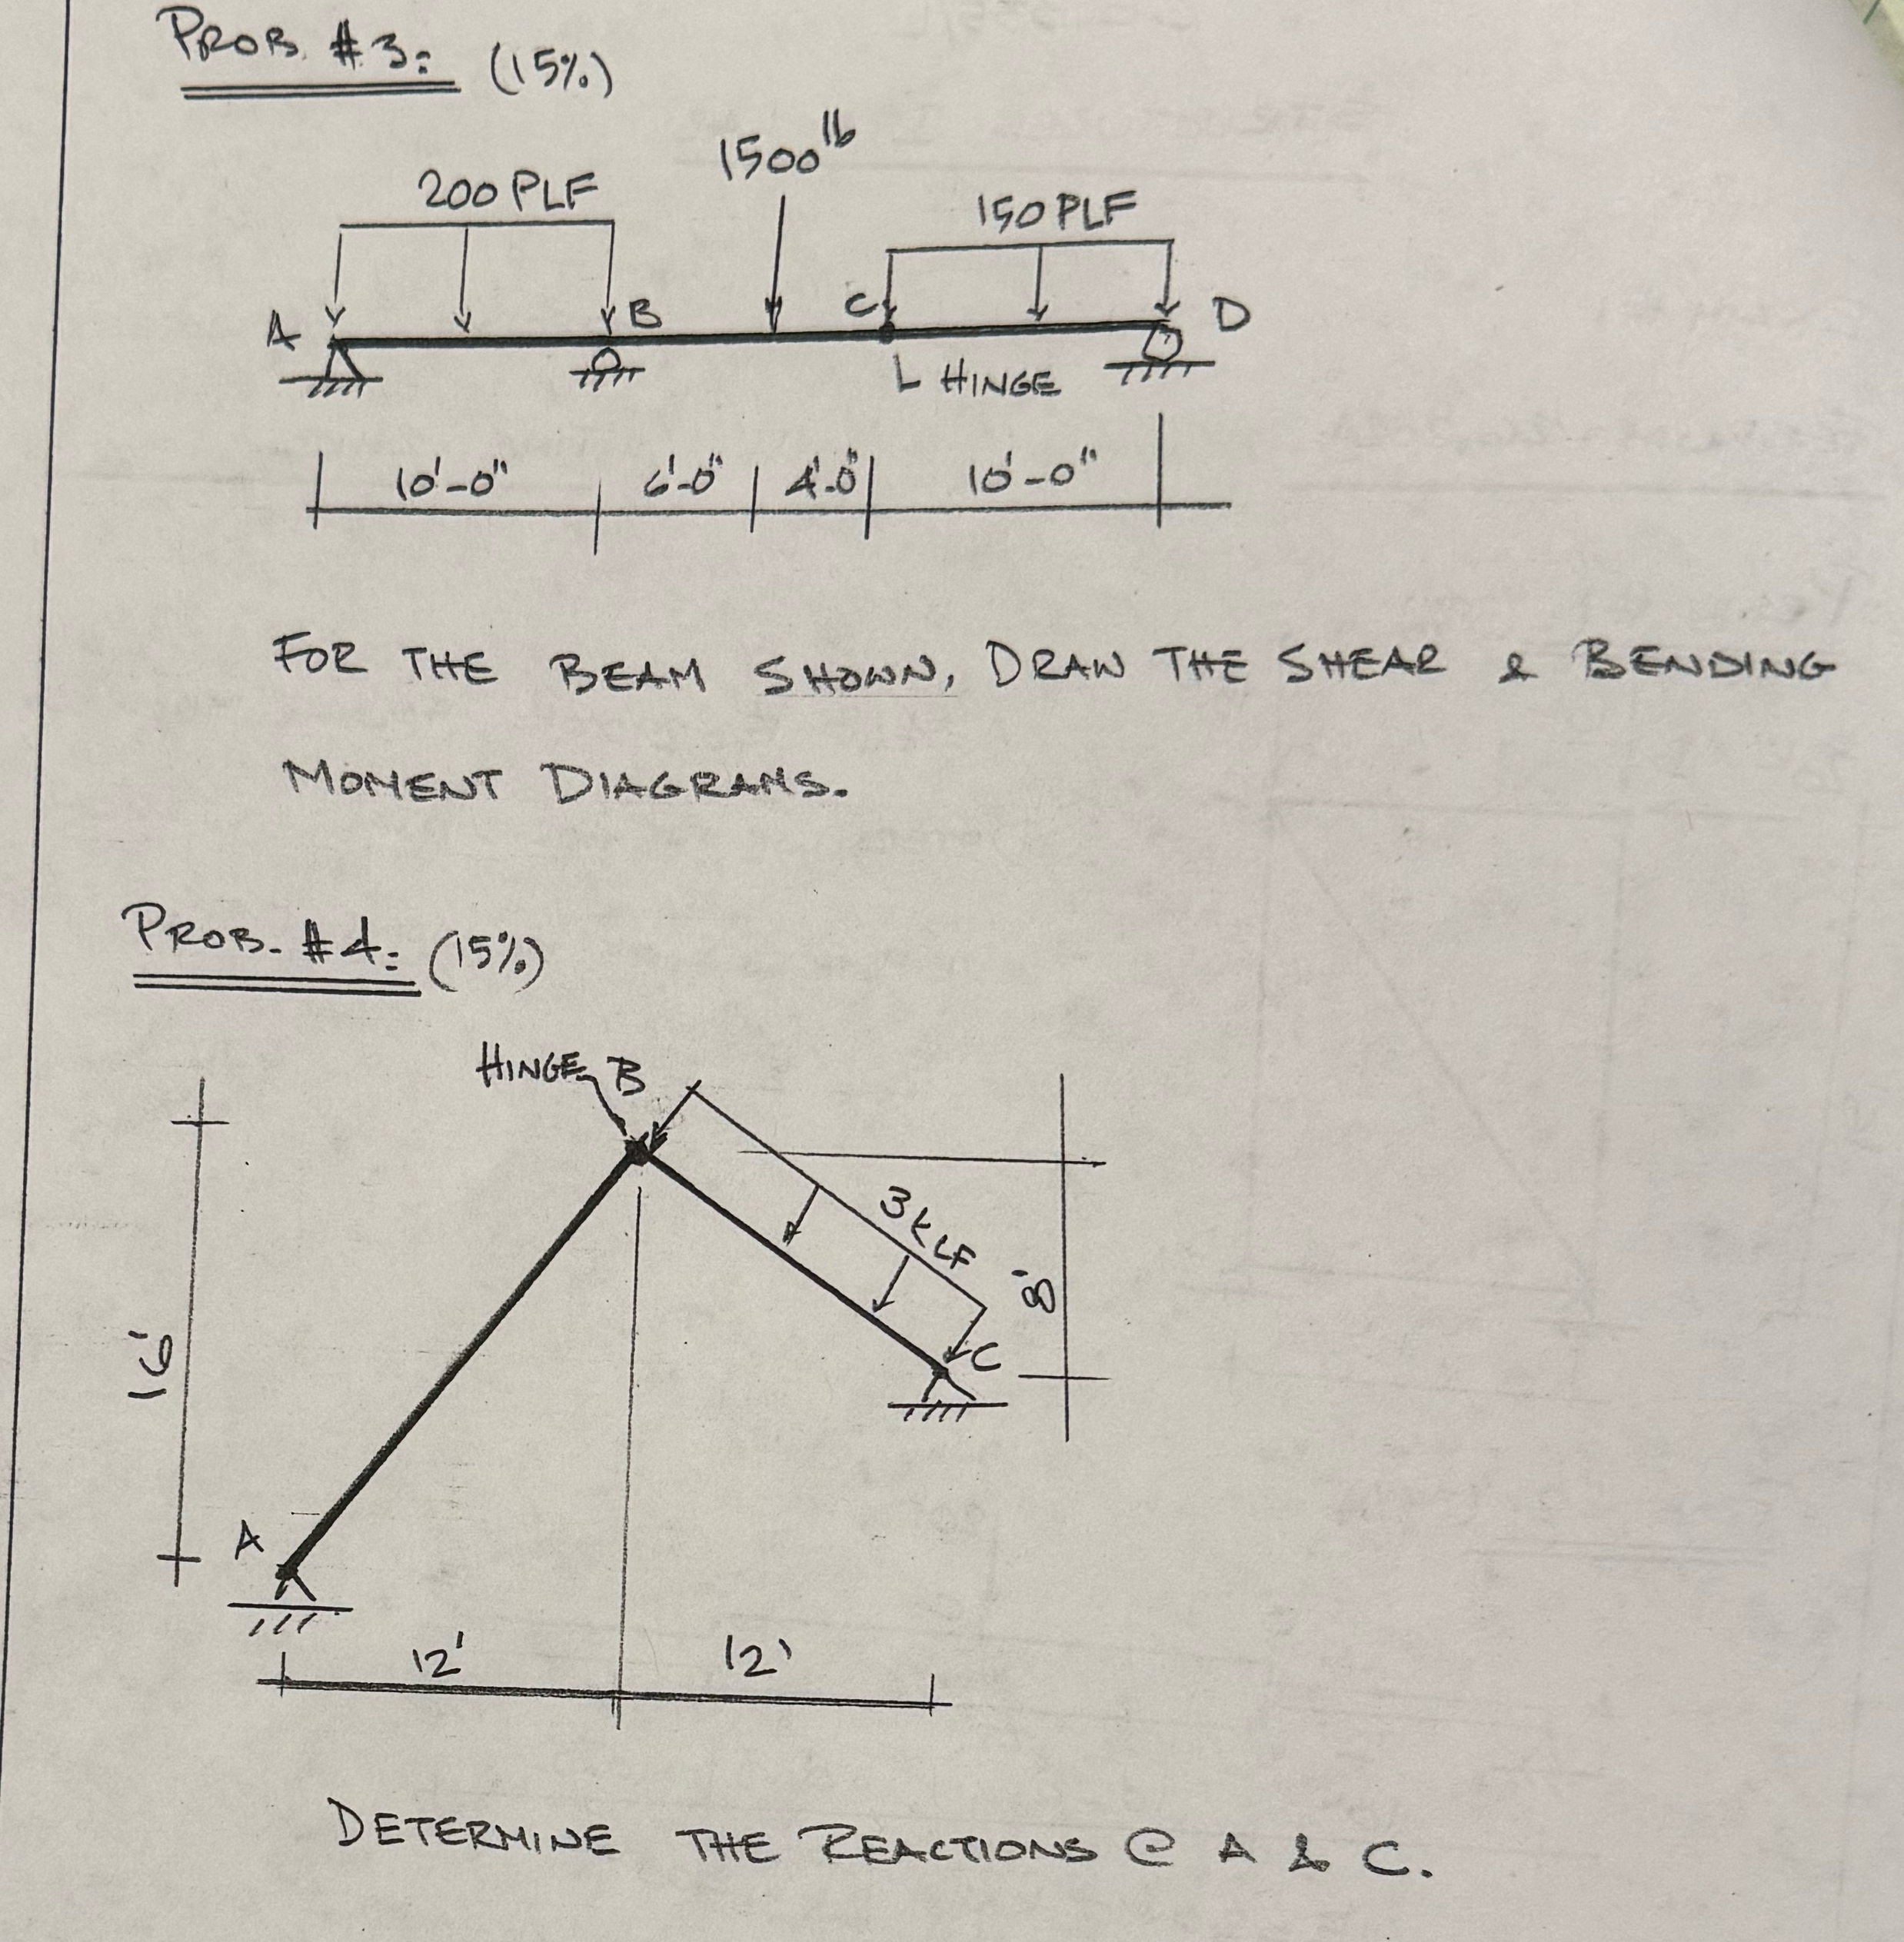 PROB. #3: (15%)
1500 lb
200 PLF
150 PLF
A
B
C
D
HINGE
10'-0" 6'-0" 4'-0" 10'-0"
FOR THE BEAM SHOWN, DRAW THE SHEAR & BENDING
MOMENT DIAGRAMS.
PROB. #4: (15%)
HINGE B
3 KLF
8'
C
16'
A
12' 12'
DETERMINE THE REACTIONS @ A & C.